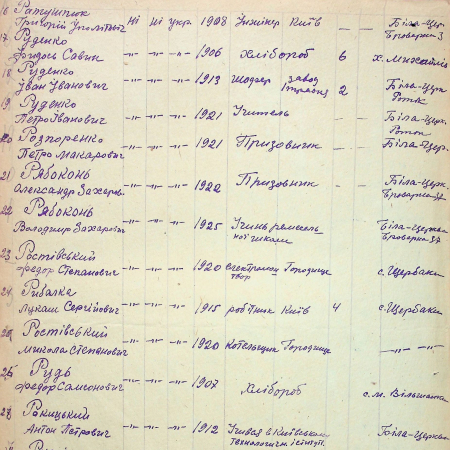 16 Ратушняк
Григорій Ні Ні укр. 1908 Інжінер Київ — — Біла-Цер.
17 Руденко Броварна 3
Савич —"— —"— —"— 1906 Хлібороб 6 х. Михайлів
18 Руденко
Іван Іванович —"— —"— —"— 1913 Шофер завод 2 Біла-Церк.
19 Руденко Роток
Петро Іванович —"— —"— —"— 1921 Учитель — Біла-Церк.
20 Розпоренко Роток
Петро Макарович —"— —"— —"— 1921 Призовник — — Біла-Церк.
21 Рябоконь
Олександр Захаров. —"— —"— —"— 1922 Призовник — — Біла-Церк.
22 Рябоконь Броварна 37
Володимир Захарович —"— —"— —"— 1925 Учень ремесль Біла-Церква
ної школи Броварна 37
23 Ростівський
Федор Степанович —"— —"— —"— 1920 Городище с. Щербаки
24 Рибалка
Лукаш Сергійович —"— —"— —"— 1915 робітник Київ 4 с. Щербаки
25 Ростівський
Микола Степанович —"— —"— —"— 1920 Котельщик Городище —"— —"—
26 Рудь
Федор Самсонович —"— —"— —"— 1907 Хлібороб с. м. Вільшанка
27 Рокицький
Антон Петрович —"— —"— —"— 1912 Учився в Київському Біла-Церква
технологичн. інстит.